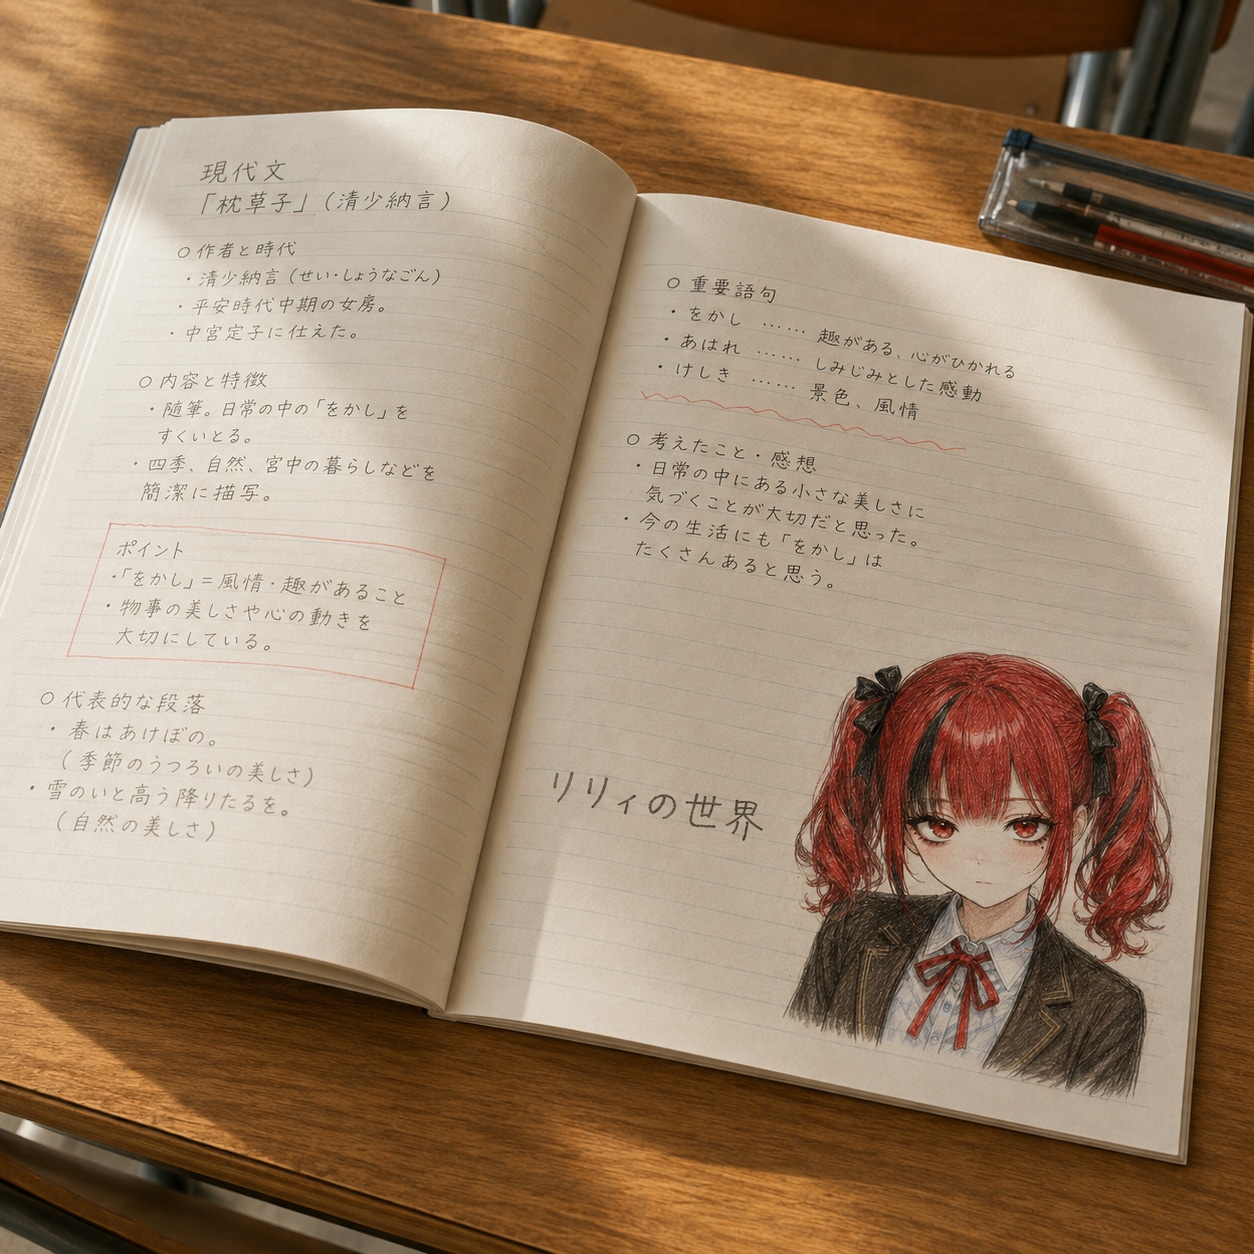 現代文
「枕草子」(清少納言)
○ 作者と時代
・清少納言(せい・しょうなごん)
・平安時代中期の女房。
・中宮定子に仕えた。
○ 内容と特徴
・随筆。日常の中の「をかし」を
すくいとる。
・四季、自然、宮中の暮らしなどを
簡潔に描写。
ポイント
・「をかし」=風情・趣があること
・物事の美しさや心の動きを
大切にしている。
○ 代表的な段落
・春はあけぼの。
(季節のうつろいの美しさ)
・雪のいと高う降りたるを。
(自然の美しさ)
○ 重要語句
・をかし …… 趣がある、心がひかれる
・あはれ …… しみじみとした感動
・けしき …… 景色、風情
○ 考えたこと・感想
・日常の中にある小さな美しさに
気づくことが大切だと思った。
・今の生活にも「をかし」は
たくさんあると思う。
リリィの世界